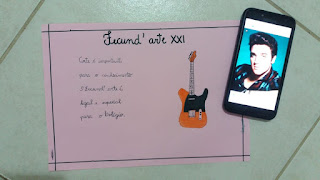 Fecund' arte XXI
Arte é importante
para o conhecimento
Fecund' arte é
legal e especial
para o biólogo